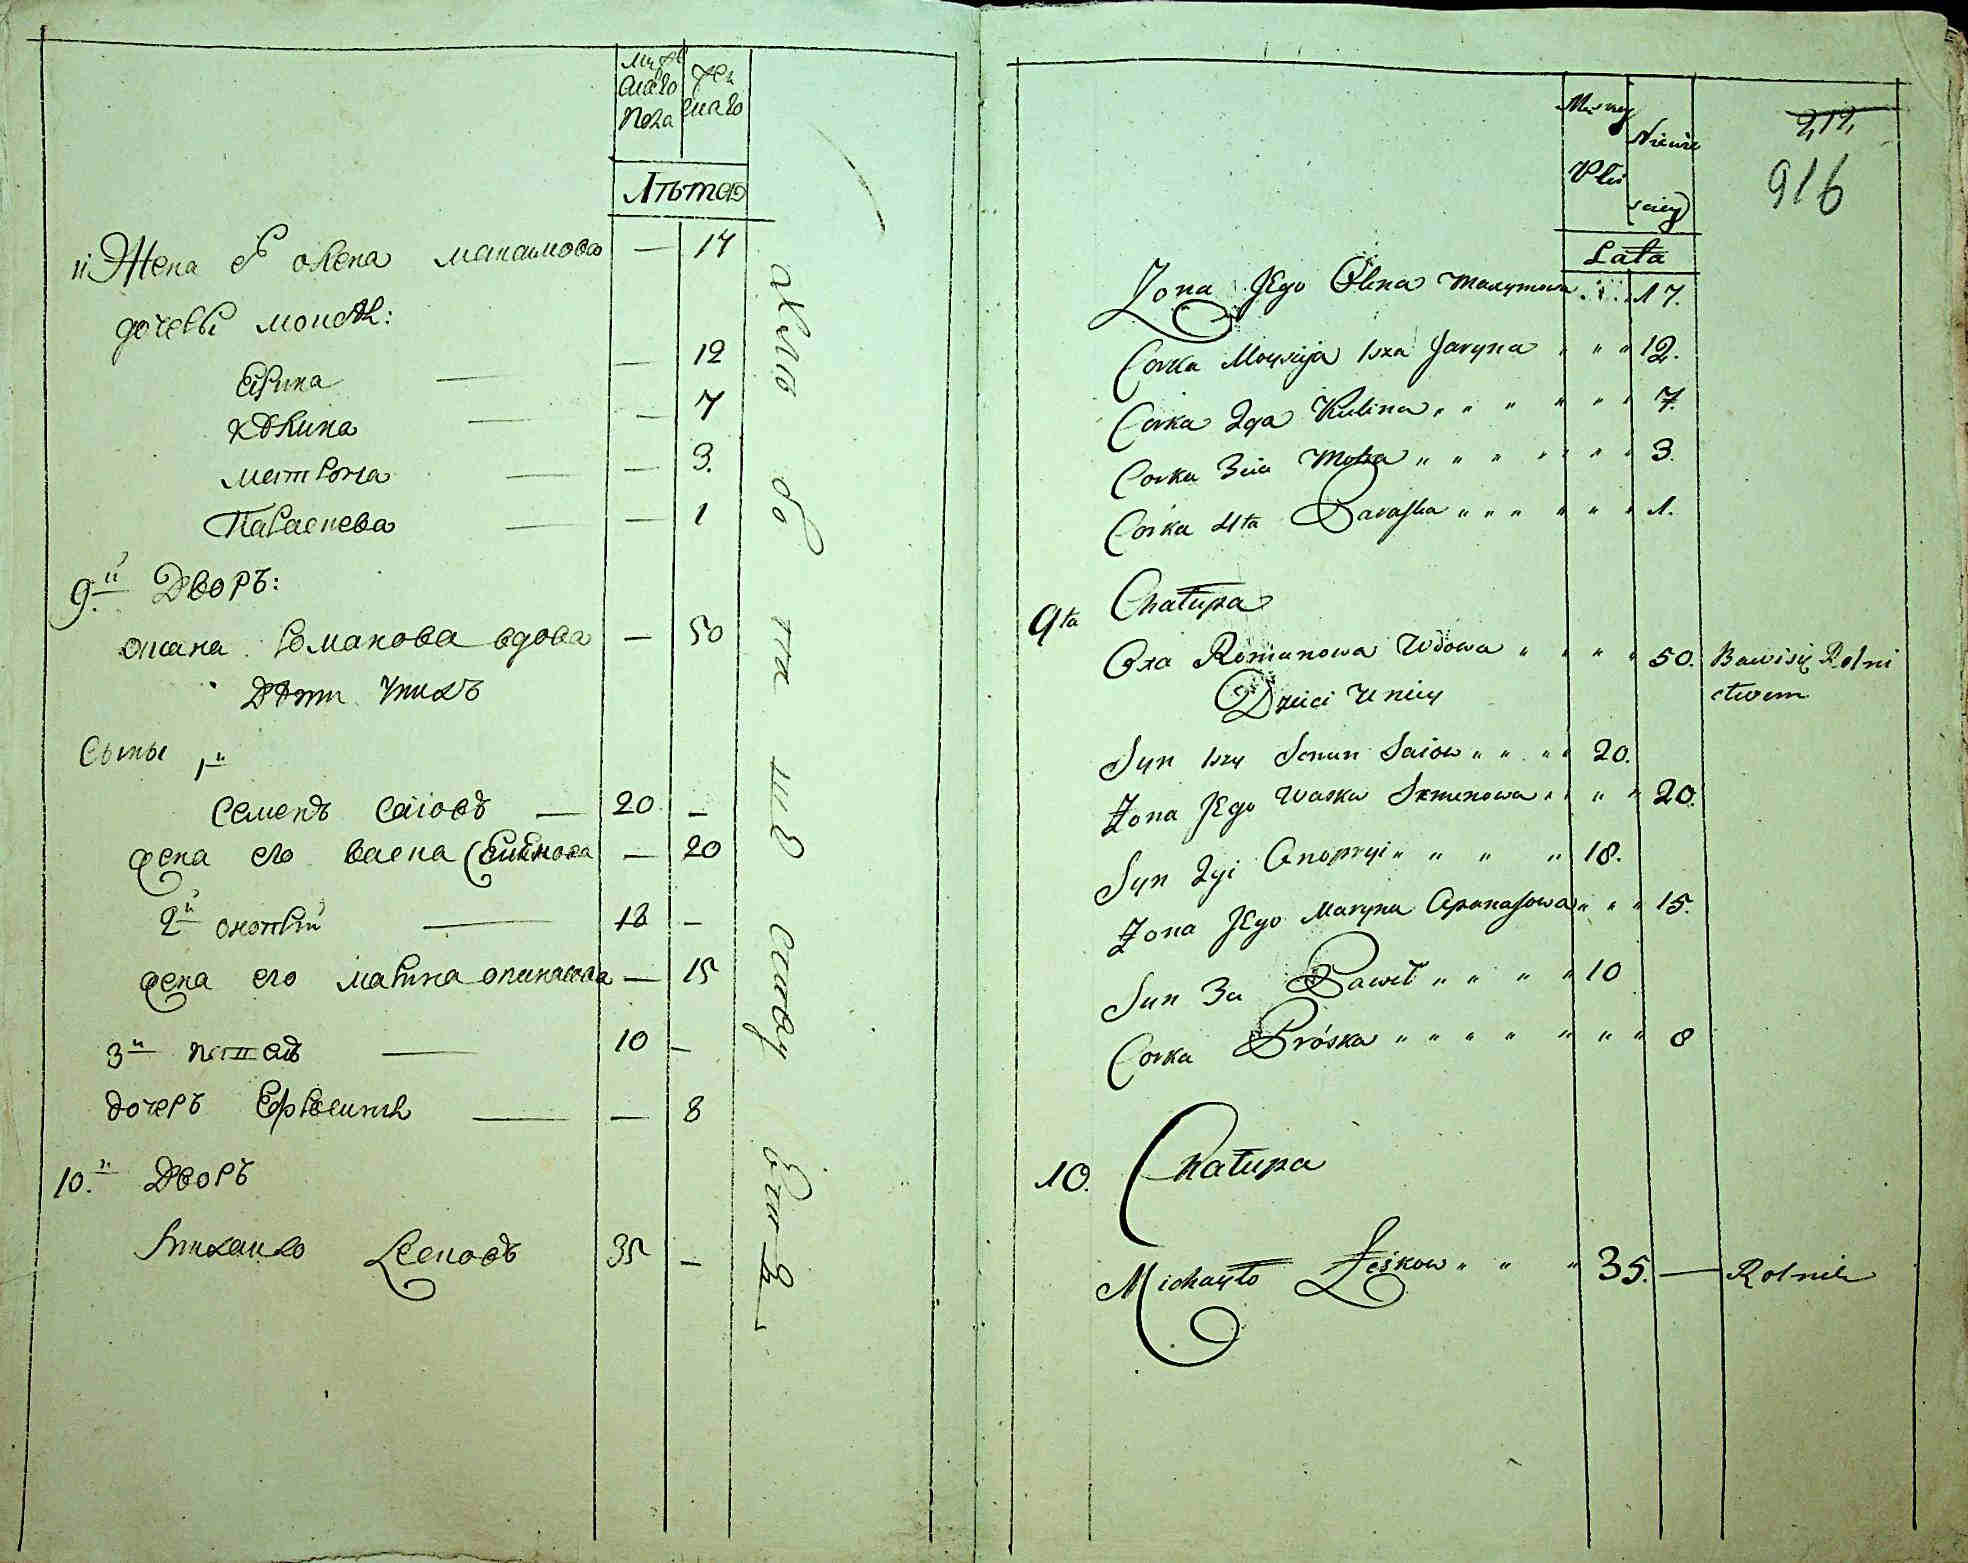 муже
скаго
пола
жен
скаго
Лѣтѣ
Жена его олена максимова — 17
дочеры моисѣя:
Ярина — 12
Кѣлина — 7
матрона — 3.
Параскева — 1
9.й Дворъ:
оксана Романова вдова — 50
Дѣти ихъ
Сыны 1й
Семенъ Саiовъ — 20 —
жена его васка Семенова — 20
2й онопрiй — 18 —
жена его марина опанасова — 15
3й павелъ — 10 —
дочеръ Ефросиния — — 8
10.й Дворъ
михайло Лесковъ 35 —
Męskiey
Płci
Niewie
sciey
Lata
2,12,
916
Zona Jego Olena Maxymowa 17.
Corka Moysija 1sza Jaryna 12.
Corka 2ga Kulina 7.
Corka 3cia Motra 3.
Corka 4ta Paraska 1.
9ta Chałupa
Oxa Romanowa Wdowa 50. Bawi się Rolni
ctwem
Dzieci Unicy
Syn 1szy Semen Saiow 20.
Zona Jego Waska Semenowa 20.
Syn 2gi Onopryi 18.
Zona Jego Maryna Apanasowa 15.
Syn 3ci Paweł 10
Corka Próska 8
10. Chałupa
Michayło Leskow 35. — Rolnik